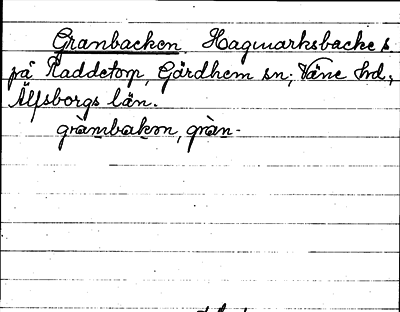 Granbacken. Hagmarksbacke s
på Raddetorp, Gärdhem sn; Väne hd,
Älfsborgs län.
gràmbakən, gràn-